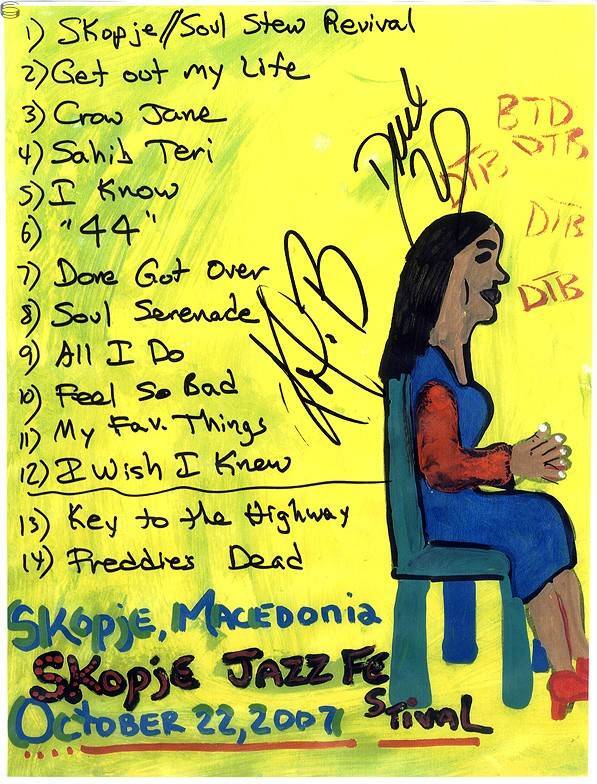 1) Skopje//Soul Stew Revival
2) Get out my Life
3) Crow Jane
4) Sahib Teri
5) I Know
6) "44"
7) Done Got Over
8) Soul Serenade
9) All I Do
10) Feel So Bad
11) My Fav. Things
12) I Wish I Knew
13) Key to the Highway
14) Freddies Dead
BTD
DTB
DTB
DTB
DTB
SKOPJE, MACEDONIA
SKOPJE JAZZ FE
STIVAL
OCTOBER 22, 2007